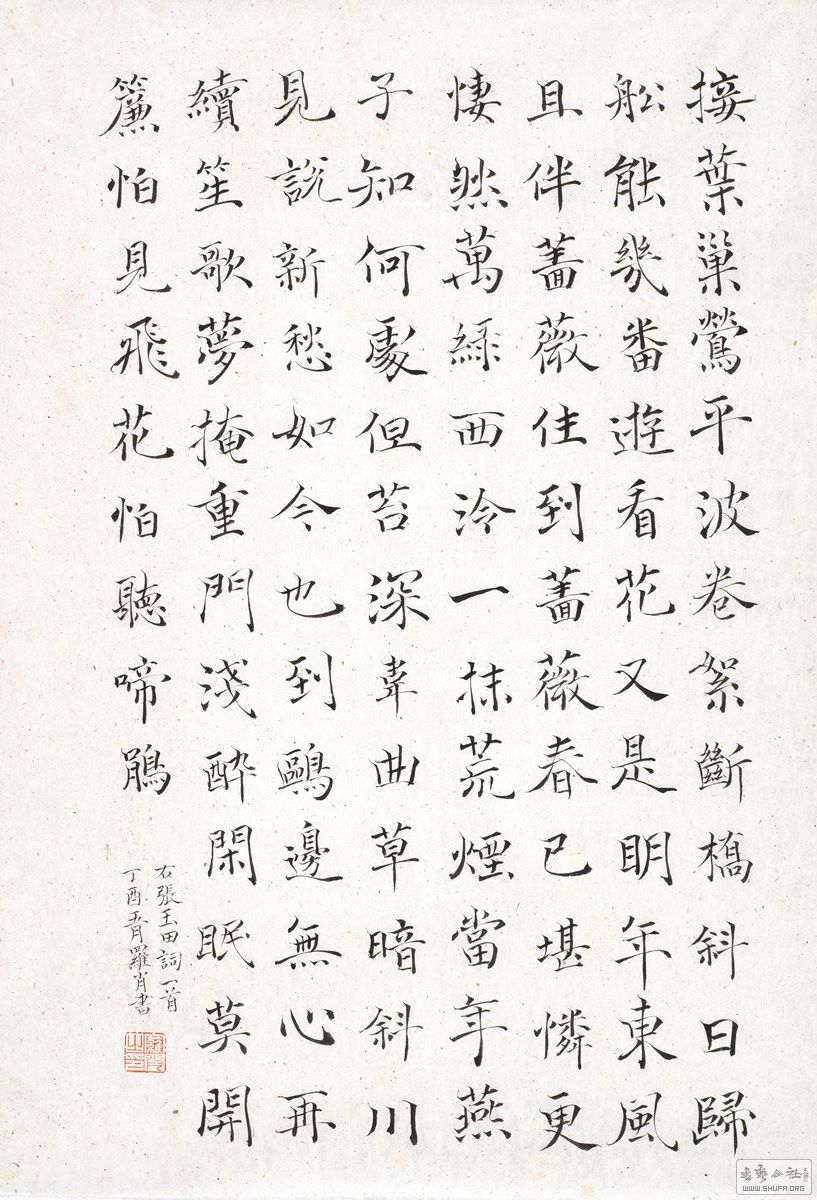 接葉巢鶯平波卷絮斷橋斜日歸
舩能幾番遊看花又是明年東風
且伴薔薇住到薔薇春已堪憐更
悽然萬綠西泠一抹荒煙當年燕
子知何處但苔深韋曲草暗斜川
見說新愁如今也到鷗邊無心再
續笙歌夢掩重門淺醉閑眠莫開
簾怕見飛花怕聽啼鵑
右張玉田詞一首
丁酉五月羅肖書
WWW.SHUFA.ORG